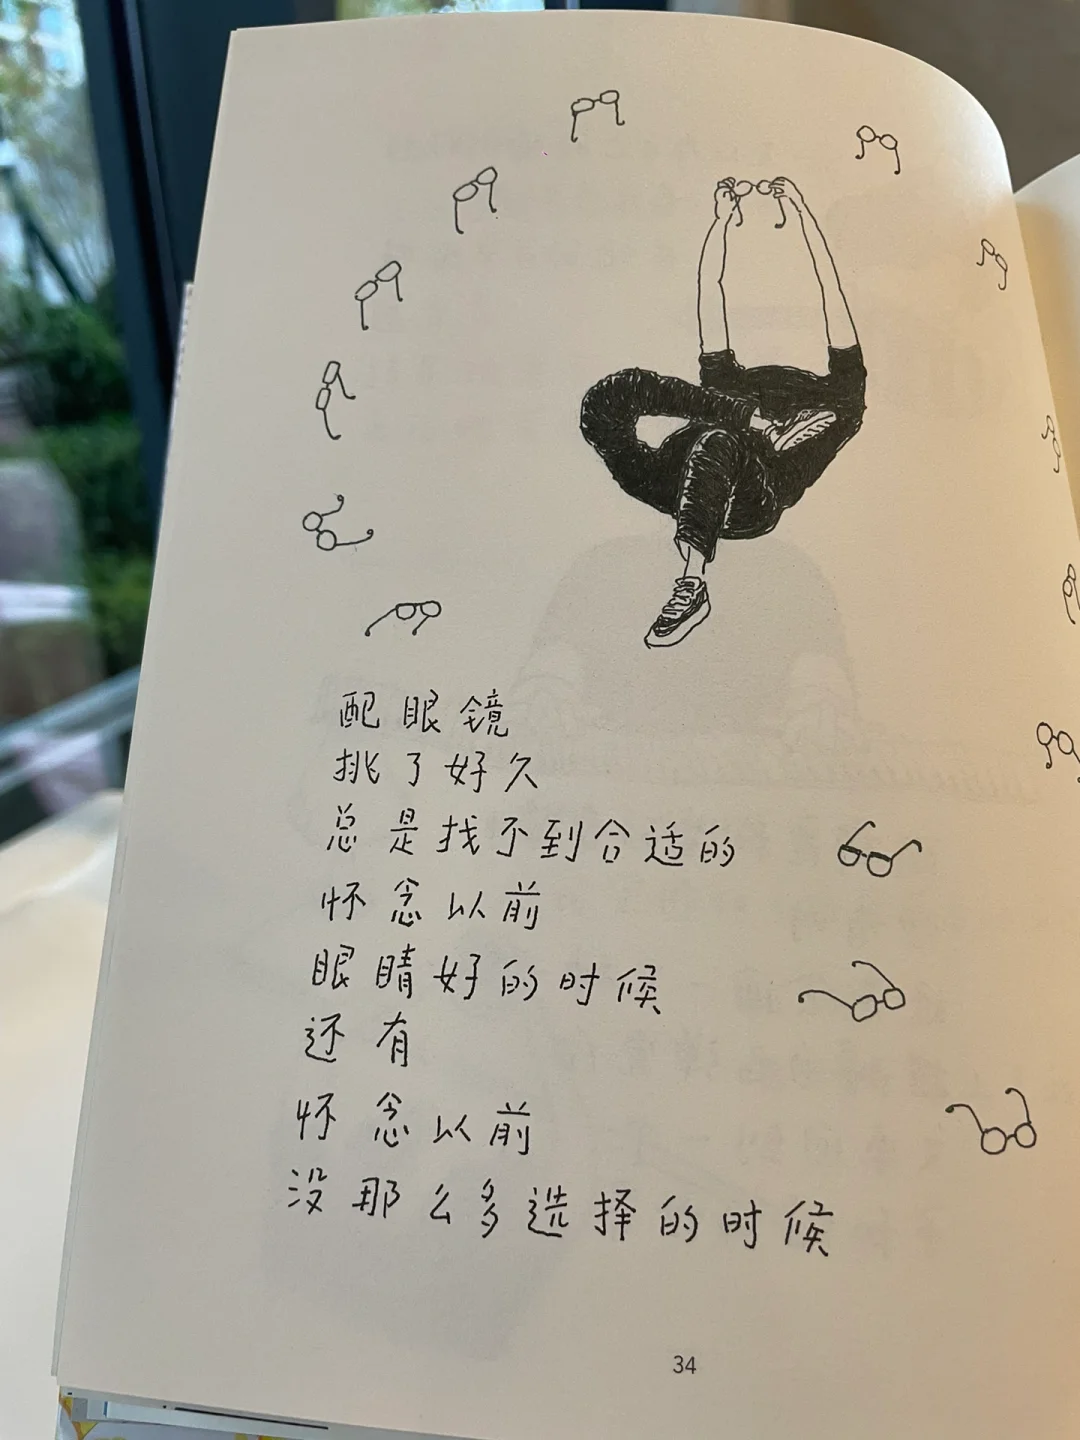 配眼镜
挑了好久
总是找不到合适的
怀念以前
眼睛好的时候
还有
怀念以前
没那么多选择的时候
34